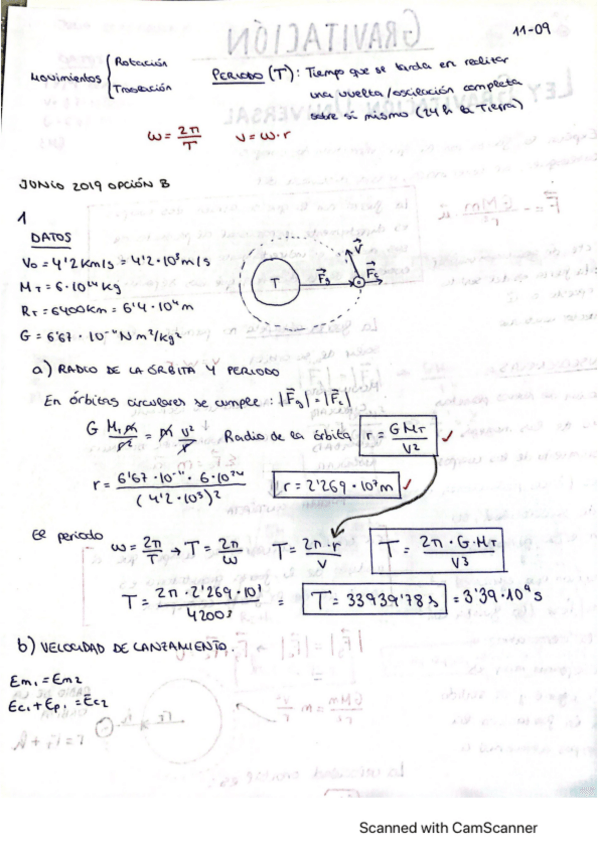 11-09
Movimientos { Rotación
Traslación
PERIODO (T): Tiempo que se tarda en realizar
una vuelta/oscilación completa
sobre sí mismo (24h la Tierra)
ω = 2π/T   v = ω·r
JUNIO 2019 OPCIÓN B
1
DATOS
V₀ = 4'2 km/s = 4'2·10³ m/s
M_T = 6·10²⁴ kg
R_T = 6400 km = 6'4·10⁴ m
G = 6'67·10⁻¹¹ N m²/kg²
T
F⃗g
V⃗
F⃗c
a) RADIO DE LA ÓRBITA Y PERIODO
En órbitas circulares se cumple: |F⃗g| = |F⃗c|
G M_T m/r² = m v²/r   Radio de la órbita   r = G M_T/V² ✓
r = 6'67·10⁻¹¹·6·10²⁴/(4'2·10³)²   r = 2'269·10⁷ m ✓
El periodo   ω = 2π/T → T = 2π/ω   T = 2π·r/V   T = 2π·G·M_T/V3
T = 2π·2'269·10⁷/4200 s = T = 33939'78 s = 3'39·10⁴ s
b) VELOCIDAD DE LANZAMIENTO.
Em₁ = Em2
Ec₁ + Ep₁ = Ec2
Scanned with CamScanner